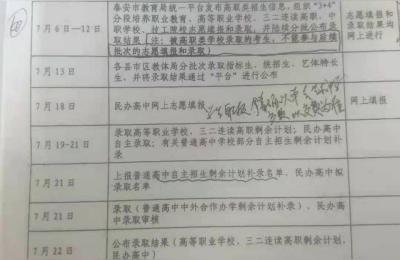 泰安市教育局统一平台发布高职类招生信息,组织“3+4”
分段培养职业教育、高等职业学校、三二连读高职、中
职学校、技工院校志愿填报和录取,并陆续分批公布录
取结果(注:被高职类学校录取的考生,不能参与后续
批次的志愿填报和录取)
7 月 6 日—12
日
志愿填报和
录取结果均
网上进行
7 月 13 日
各县市区教体局分批次录取指标生、统招生、艺体特长
生,并将录取结果通过“平台”进行公布
7 月 18 日
民办高中网上志愿填报
网上填报
7 月 19-21
日
录取高等职业学校、三二连读高职剩余计划;民办高中
自主录取;有关普通高中学校部分自主招生剩余计划录
取
7 月 21 日
上报普通高中自主招生剩余计划补录名单、民办高中拟
录取名单
7 月 21 日
录取(普通高中中外合作办学剩余计划补录)、民办高
中录取审核
7 月 22 日
公布录取结果(高等职业学校、三二连读高职剩余计划,
民办高中)